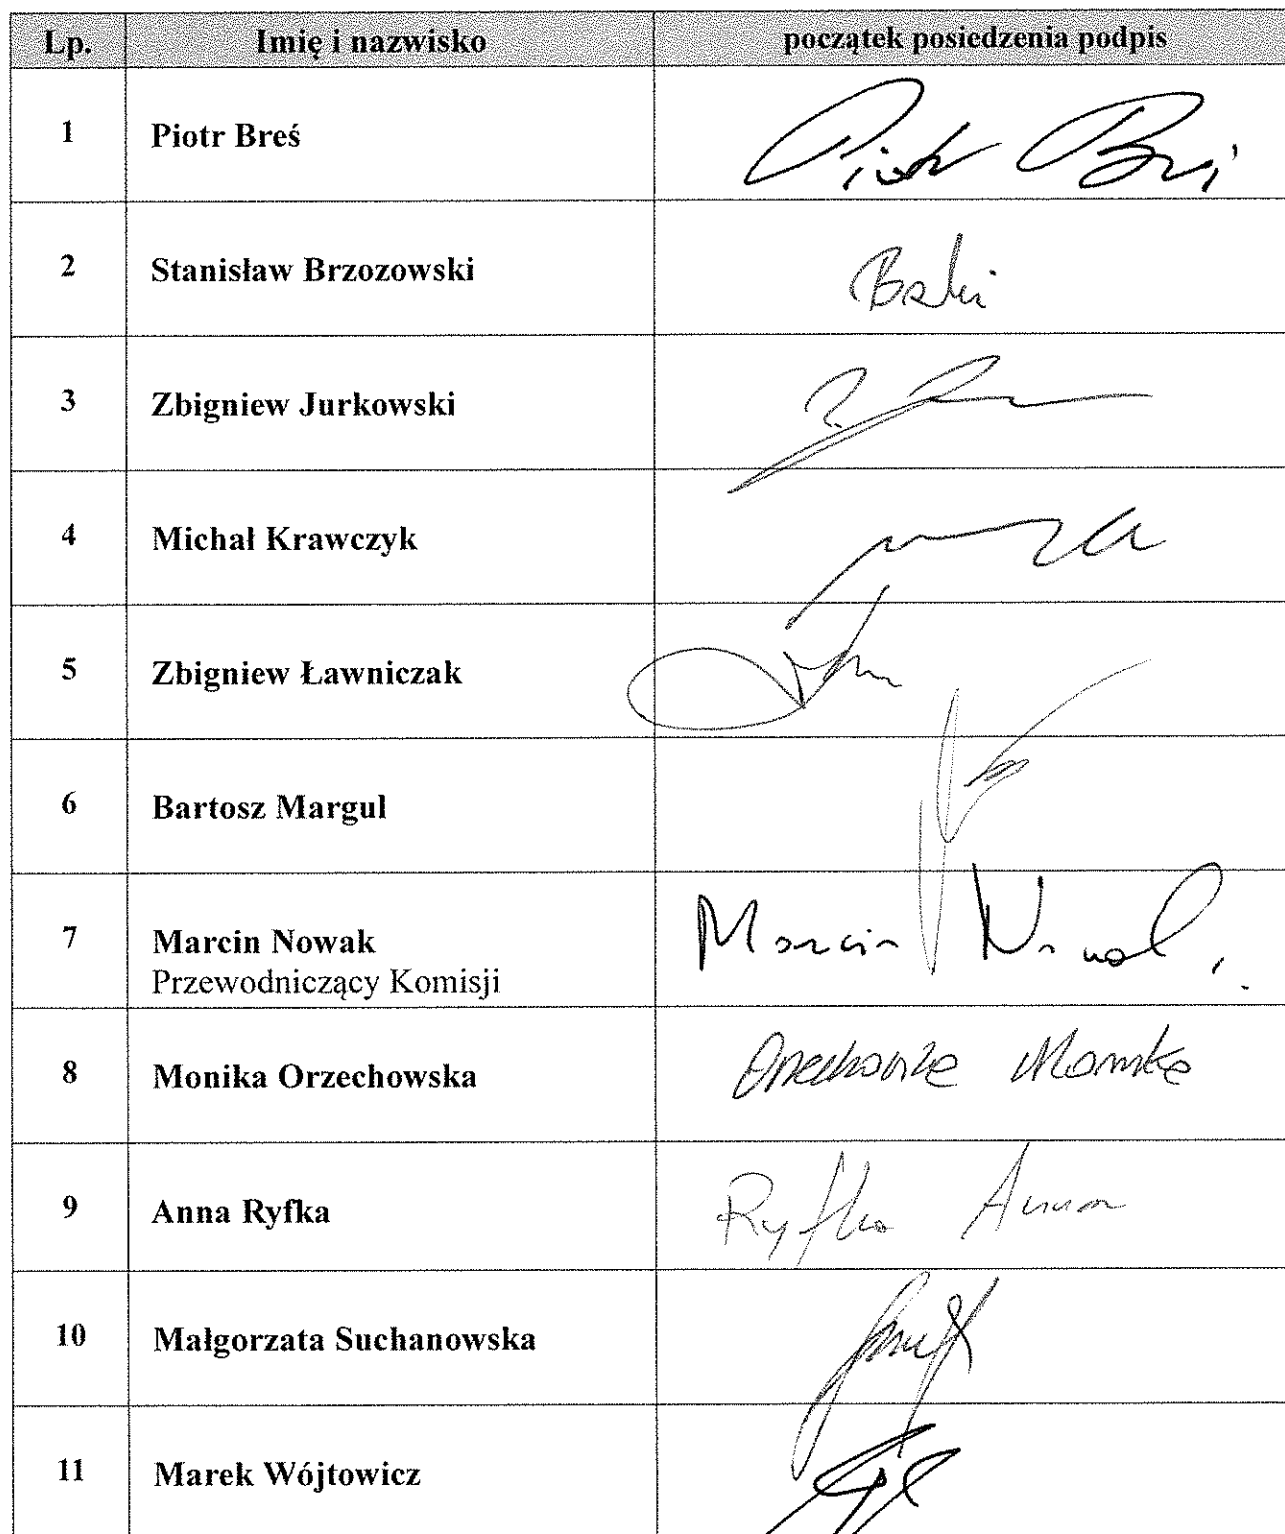 Lp. Imię i nazwisko początek posiedzenia podpis
1 Piotr Breś Piotr Breś
2 Stanisław Brzozowski
3 Zbigniew Jurkowski
4 Michał Krawczyk
5 Zbigniew Ławniczak
6 Bartosz Margul
7 Marcin Nowak Marcin Nowak
Przewodniczący Komisji
8 Monika Orzechowska
9 Anna Ryfka Ryfka Anna
10 Małgorzata Suchanowska
11 Marek Wójtowicz